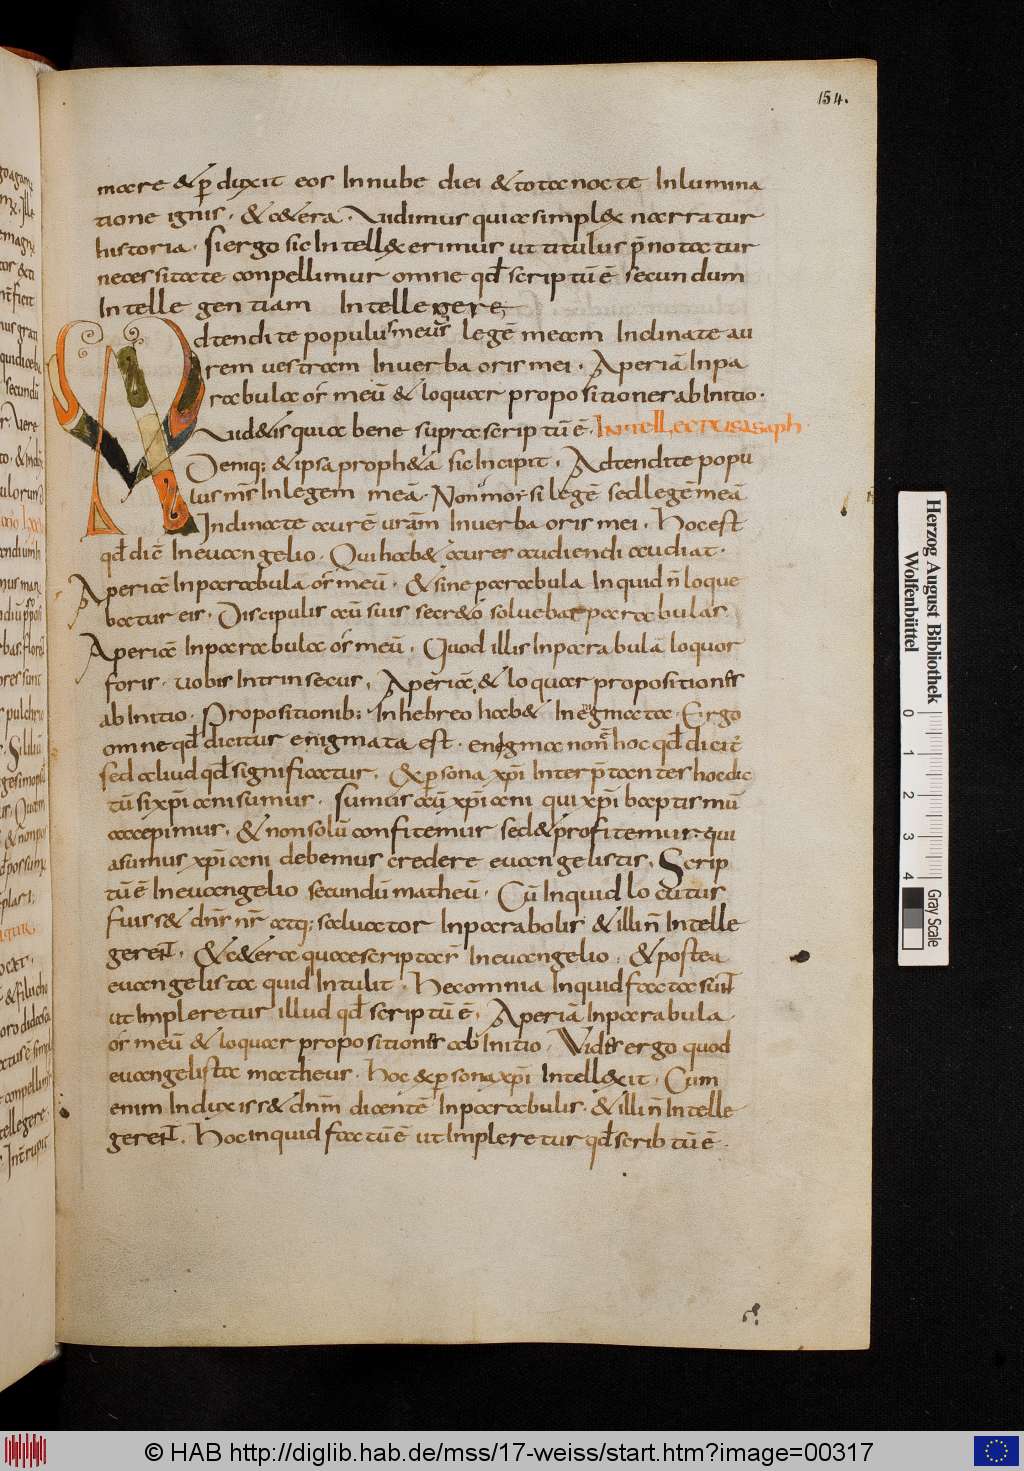 154.
mare & p̄ duxit eos In nube diei & tota nocte In lumina
tione ignis. & cetera. Vidimus quia simplex narratur
historia. si ergo sic Intellexerimus ut titulus p̄notatur
necessitate conpellimur omne qđ scriptū ē secundum
Intellegentiam Intellegere
Adtendite populus meus legē meam Inclinate au
rem uestram In uerba oris mei. Aperiā In pa
rabula os meū & loquar propositiones ab Initio.
Uidetis quia bene supra scriptū ē. Intellectus asaph
Deniq; & ipsa propheta sic Incipit. Adtendite popu
lus m̄s In legem meā. Non mosi legē sed legē meā
Inclinate aurē urām In uerba oris mei. Hoc est
qđ dic̄ In euangelio. Qui habet aures audiendi audiat.
Aperiā In parabula os meū. & sine parabula Inquid n̄ loque
batur eis. Discipulis aū suis secreto soluebat parabulas.
Aperiā In parabula os meū. Quod illis In parabulā loquor
foris. uobis Intrinsecus. Aperiā & loquar propositiones
ab Initio. Propositionib; In hebreo habet Inegmata. Ergo
omne qđ dicitur enigmata est. enigma non hoc qđ dicit
sed aliud qđ significatur. Ex persona xpi Interp̄tanter hoc dic
tū si xpiani sumus. sumus aū xpiani qui xpi baptismū
accepimus. & non solū confitemur sed & profitemur qui
asumus xpiani debemus credere euangelistis. Scrip
tū ē In euangelio secundū matheū. Cū Inquid locutus
fuisset dn̄s n̄r atq; saluator In parabolis & illi n̄ Intelle
gerent. & cetera quae scripta sr̄ In euangelio. & postea
euangelista quid Intulit. Hec omnia Inquid facta sunt
ut Impleretur illud qđ scriptū ē. Aperiā In parabula
os meū & loquar propositiones ab Initio. Vides ergo quod
euangelista matheus. hoc ex persona xpi Intellexit. Cum
enim Induxisset dnm̄ dicentē In parabulis. & illi n̄ Intelle
gerent. Hoc inquid factū ē ut Impleretur qđ scribtū ē.
Herzog August Bibliothek
Wolfenbüttel
0 1 2 3 4
Gray Scale
© HAB http://diglib.hab.de/mss/17-weiss/start.htm?image=00317